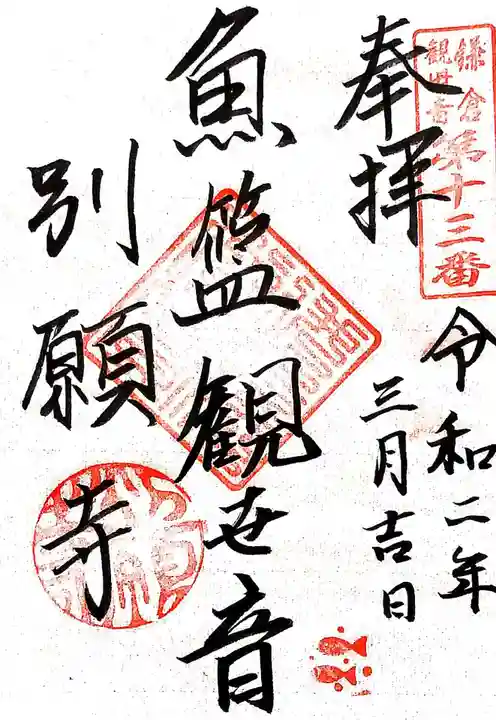 鎌倉
観世音
第十三番
奉拝
令和二年
三月吉日
魚籃観世音
別願寺